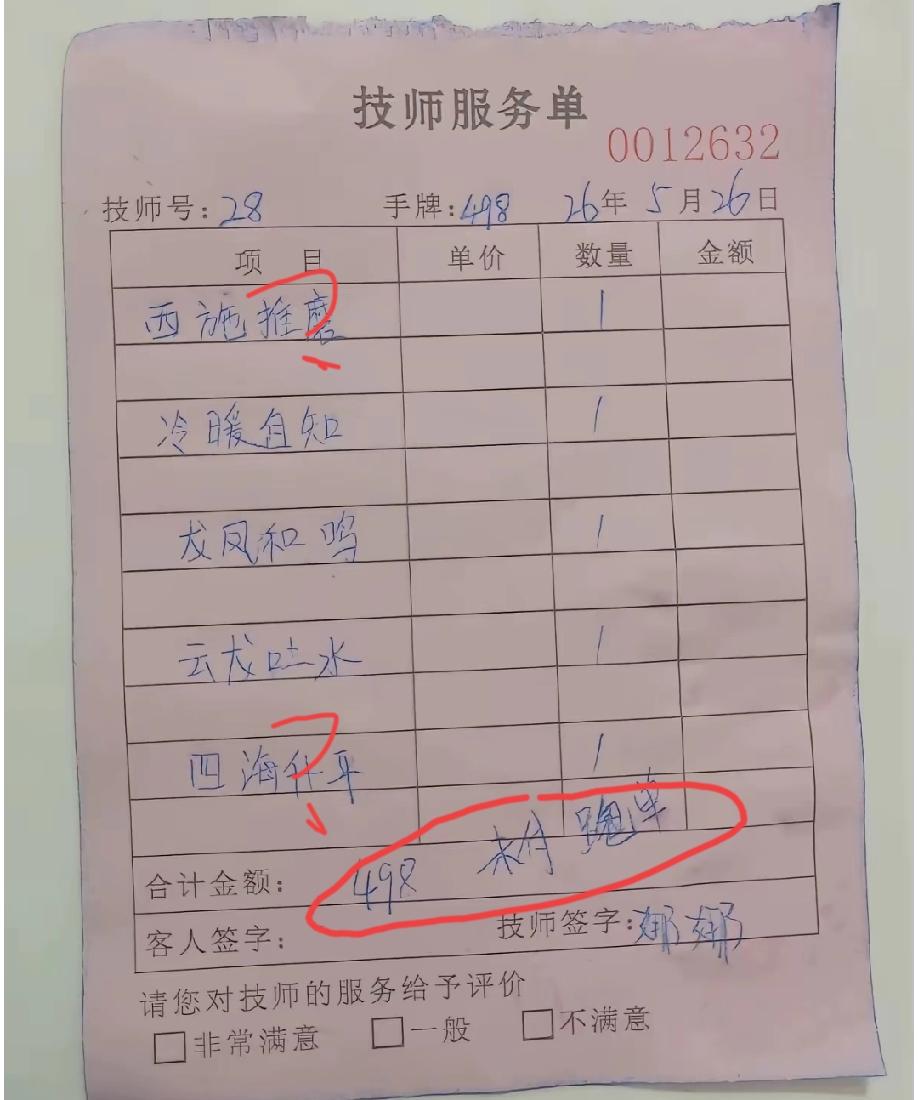 技师服务单
0012632
技师号:28 手牌:498 26年5月26日
项目 单价 数量 金额
西施推磨 1
冷暖自知 1
龙凤和鸣 1
云龙吐水 1
四海升平 1
合计金额: 498 未付 跑单
客人签字: 技师签字:娜娜
请您对技师的服务给予评价
□非常满意 □一般 □不满意